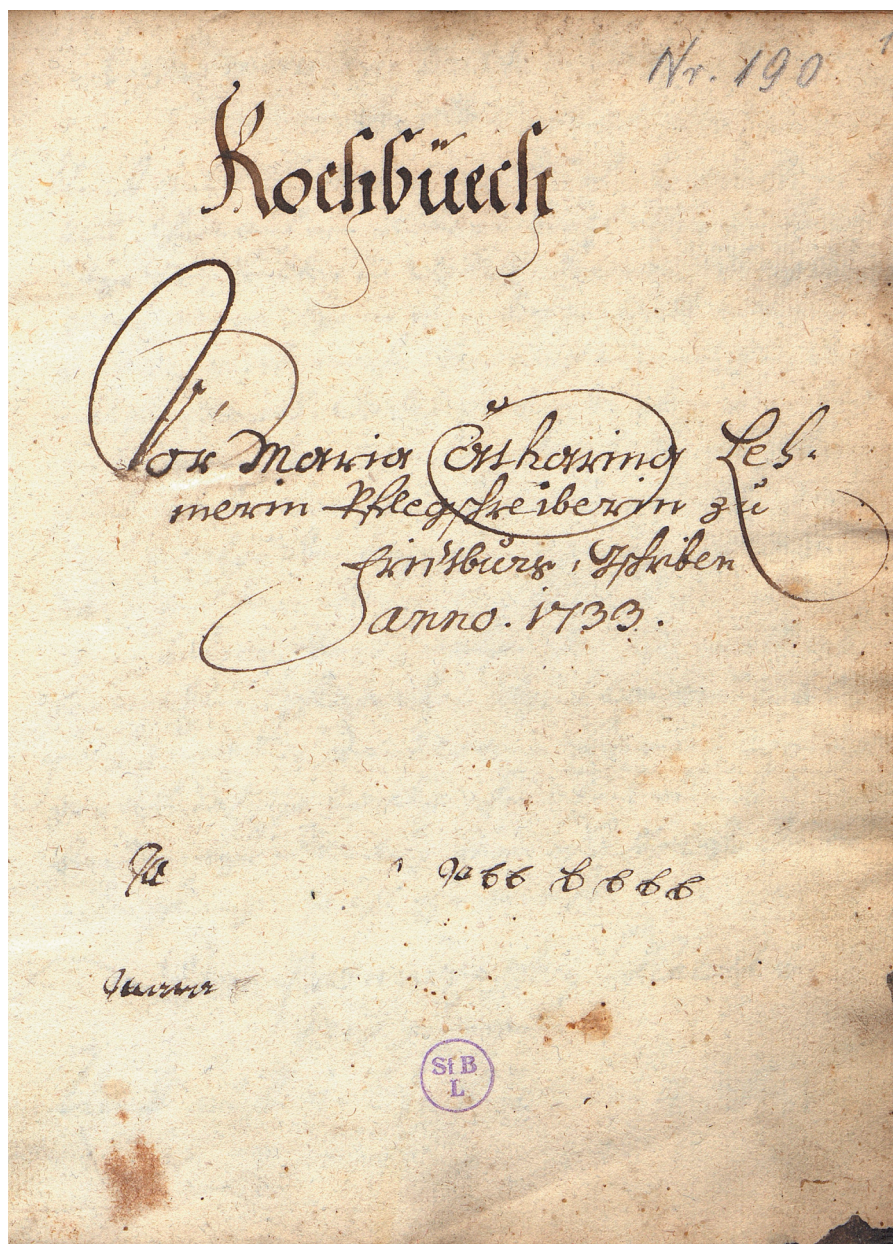 Nr. 190
1
Kochbüech
Vor Maria Catharina Leh-
nerin Pflegschreiberin zu
Fridburg, Gschriben
Anno. 1733.
St B
L